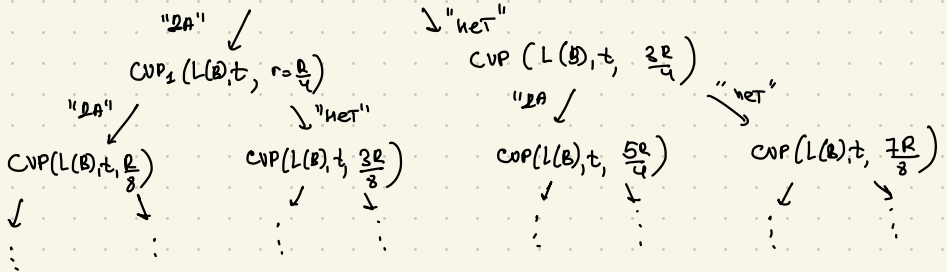 "ДА" "НЕТ"
CVP₁ (L(B), t, r = R/4) CVP (L(B), t, 3R/4)
"ДА" "НЕТ" "ДА "НЕТ"
CVP(L(B), t, R/8) CVP(L(B), t, 3R/8) CVP(L(B), t, 5R/4) CVP(L(B), t, 7R/8)